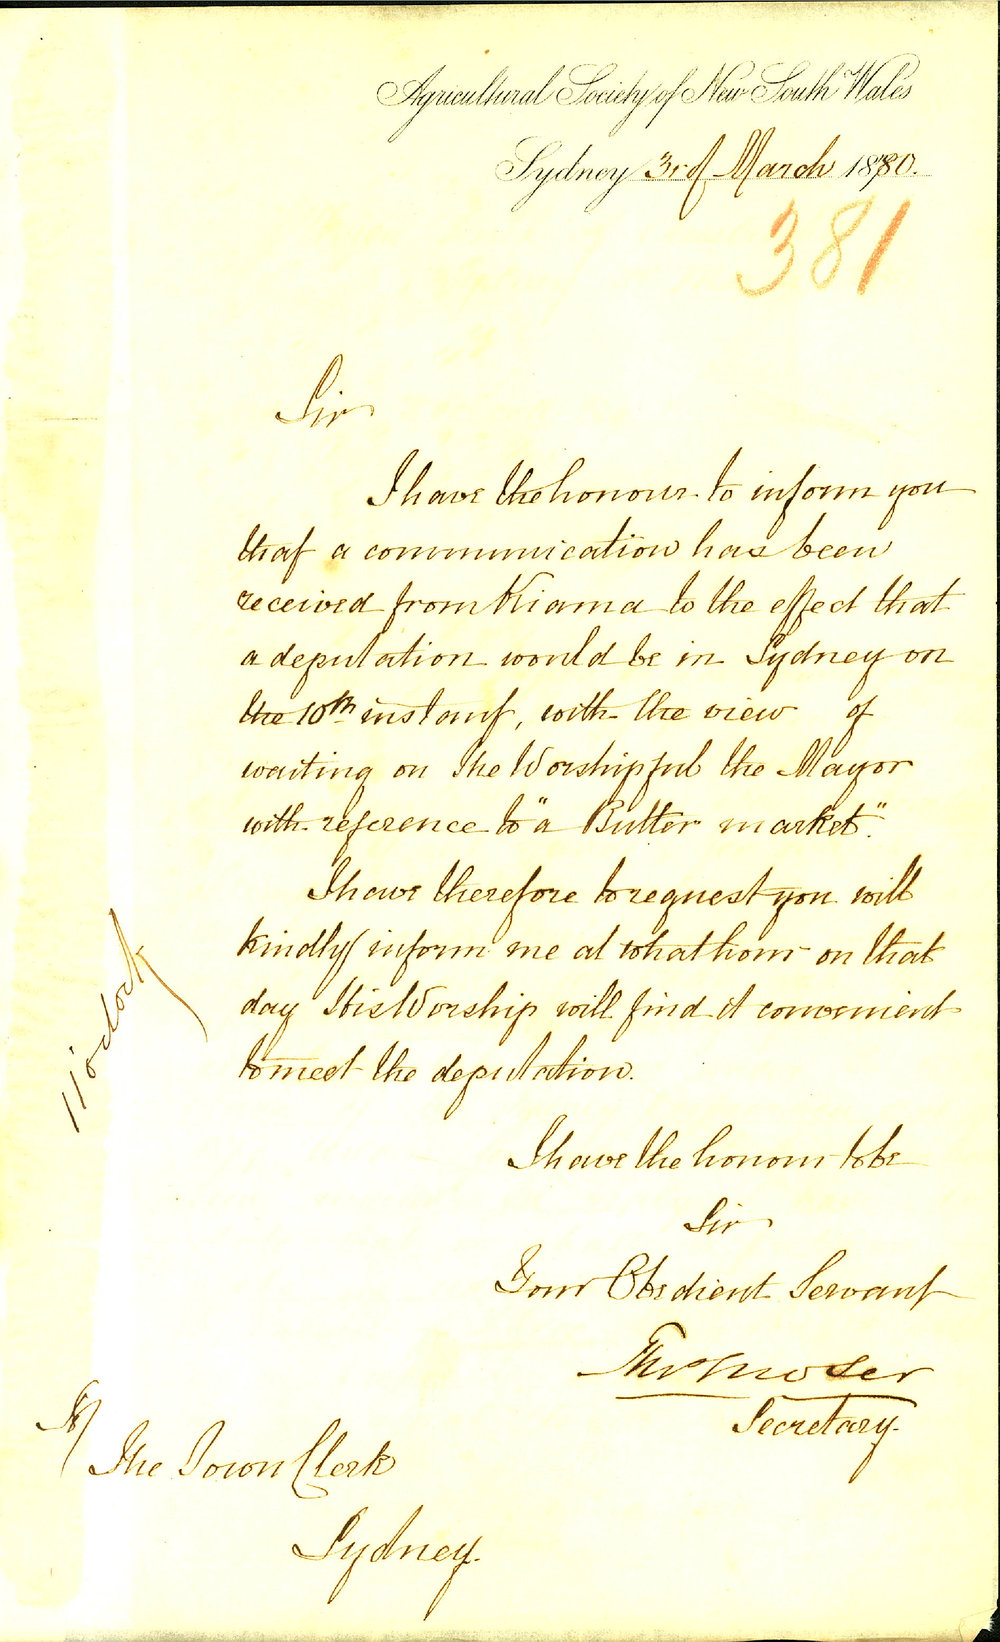 Agricultural Society of New South Wales
Sydney 3rd March 1880.
381
Sir
I have the honour to inform you
that a communication has been
received from Kiama to the effect that
a deputation would be in Sydney on
the 10th instant, with the view of
waiting on The Worshipful the Mayor
with reference to "a Butter market".
I have therefore to request you will
kindly inform me at what hour on that
day His Worship will find it convenient
to meet the deputation.
11 o'clock
I have the honour to be
Sir
Your Obedient Servant
Moser
Secretary.
The Town Clerk
Sydney.